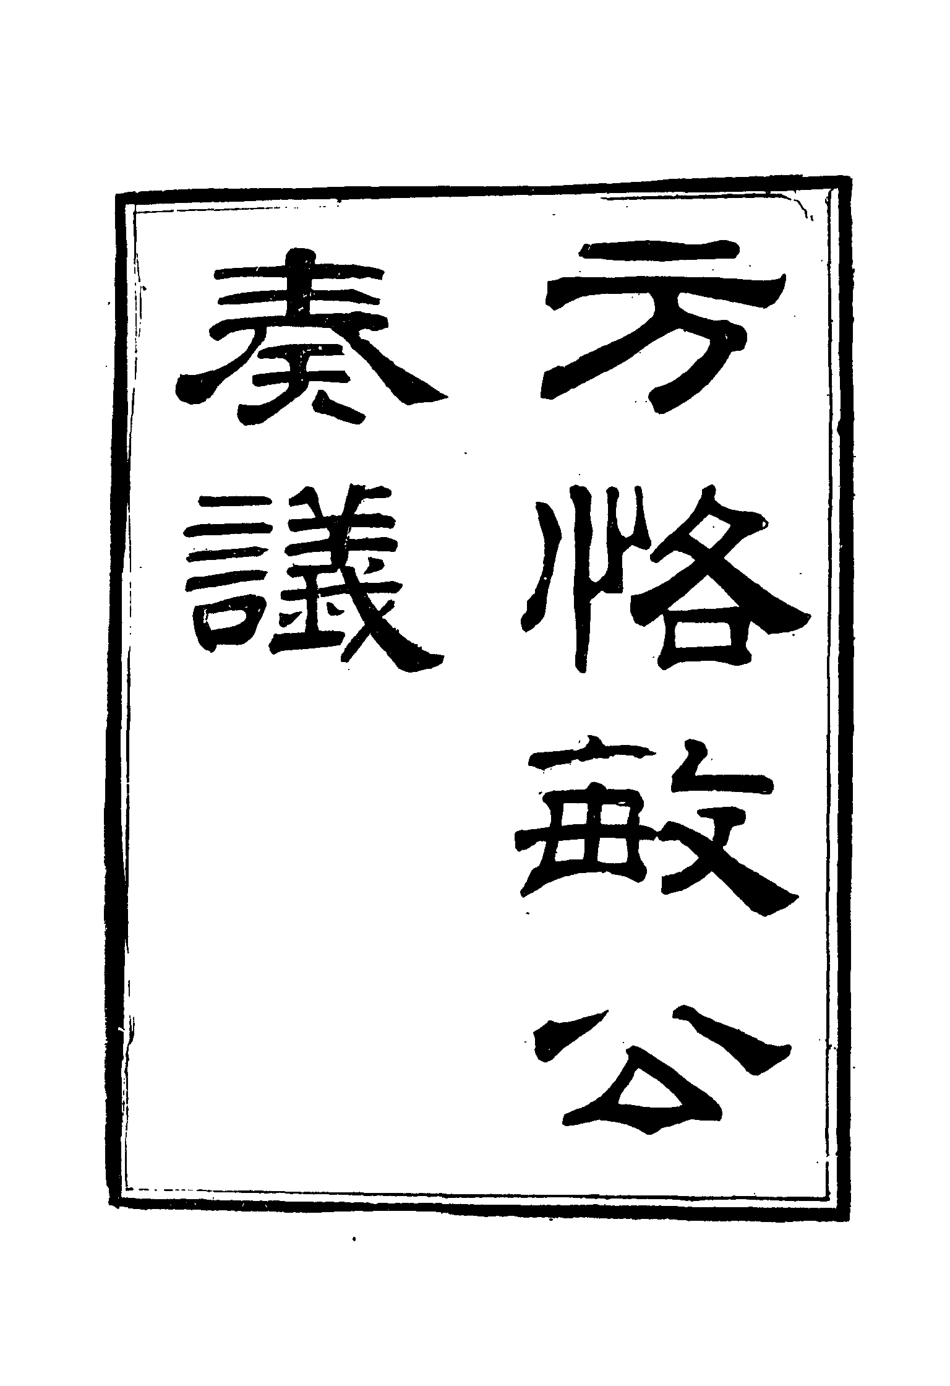 方恪敏公
奏議